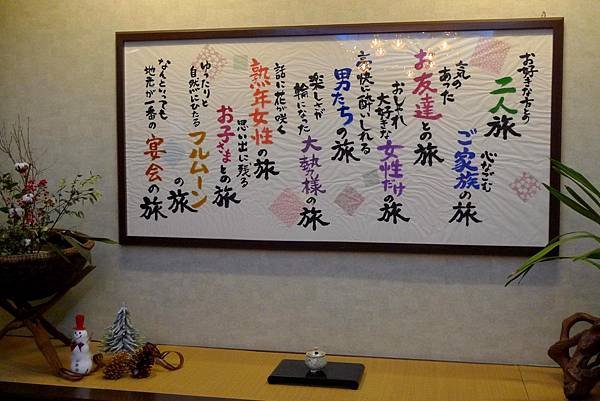 お好きな方と
二人旅
心なごむ
ご家族の旅
気のあった
お友達との旅
おしゃれ
大好きな女性だけの旅
豪快に酔いしれる
男たちの旅
楽しさが
輪になった大勢様の旅
話に花が咲く
熟年女性の旅
思い出に残る
お子さまとの旅
ゆったりと
自然にひたる
フルムーンの旅
なんといっても
地元が一番の宴会の旅